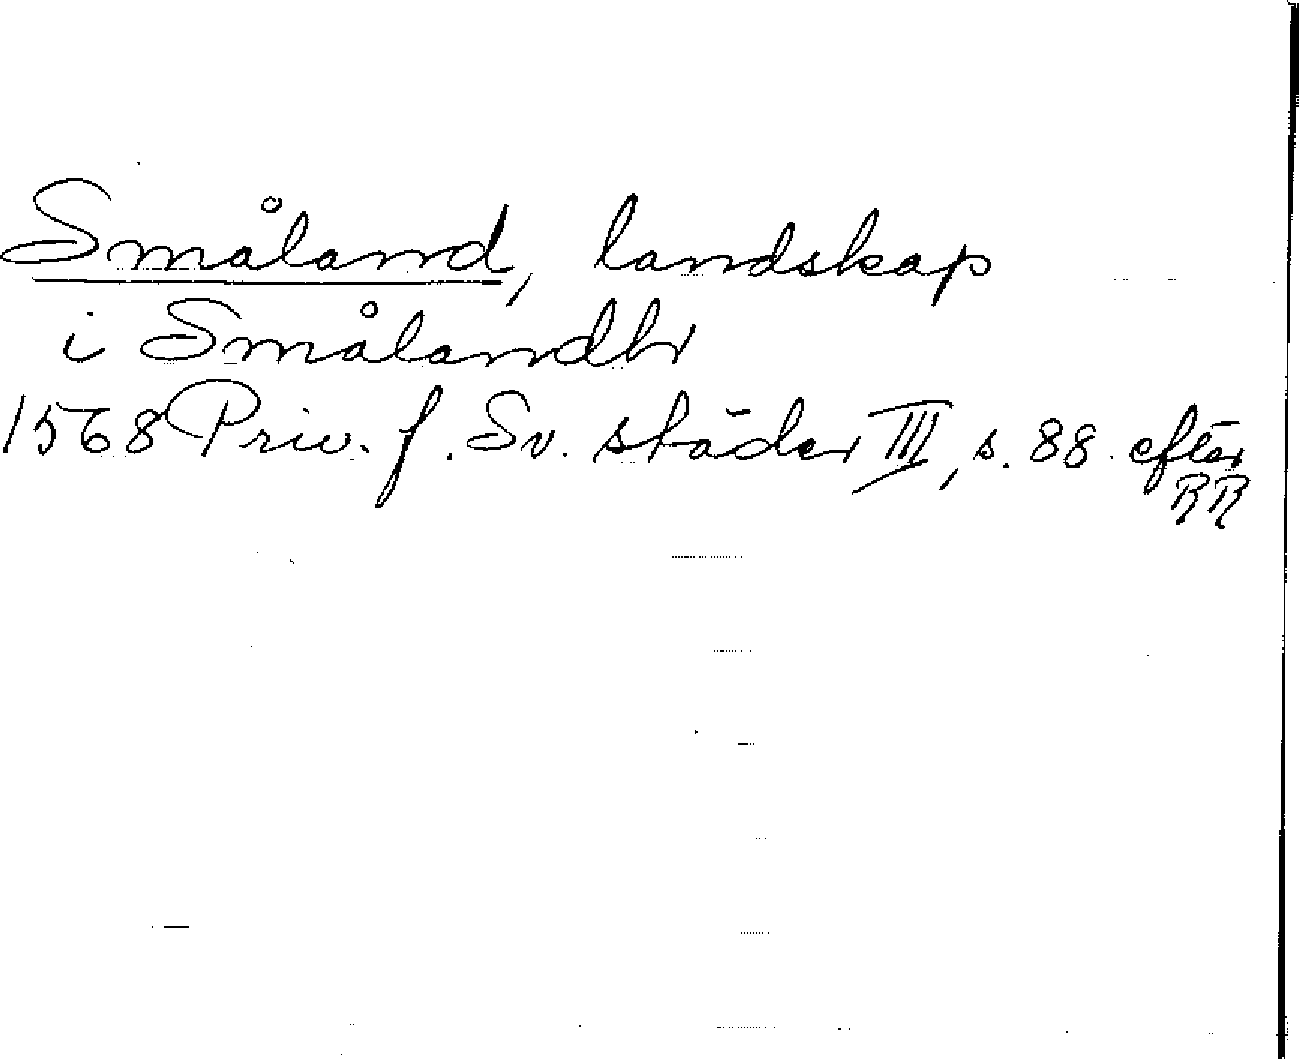 Småland, landskap
i Smålandh
1568 Priv. f. Sv. städer III, s. 88 efter
RR